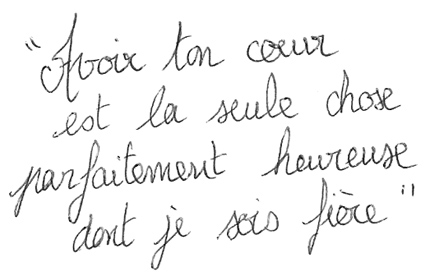 "Avoir ton cœur
est la seule chose
parfaitement heureuse
dont je sois fière"